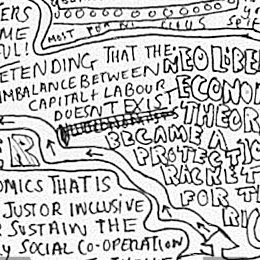 ERS
MOST
ME
UL!
ETENDING THAT THE
IMBALANCE BETWEEN
CAPITAL + LABOUR
DOESN'T EXIST
NEOLIBE
ECONO
THEOR
BECAME A
PROTECTIO
RACKET
FOR T
RIC
ER
OMICS THAT IS
JUST OR INCLUSIVE
SUSTAIN THE
Y SOCIAL CO-OPERATION